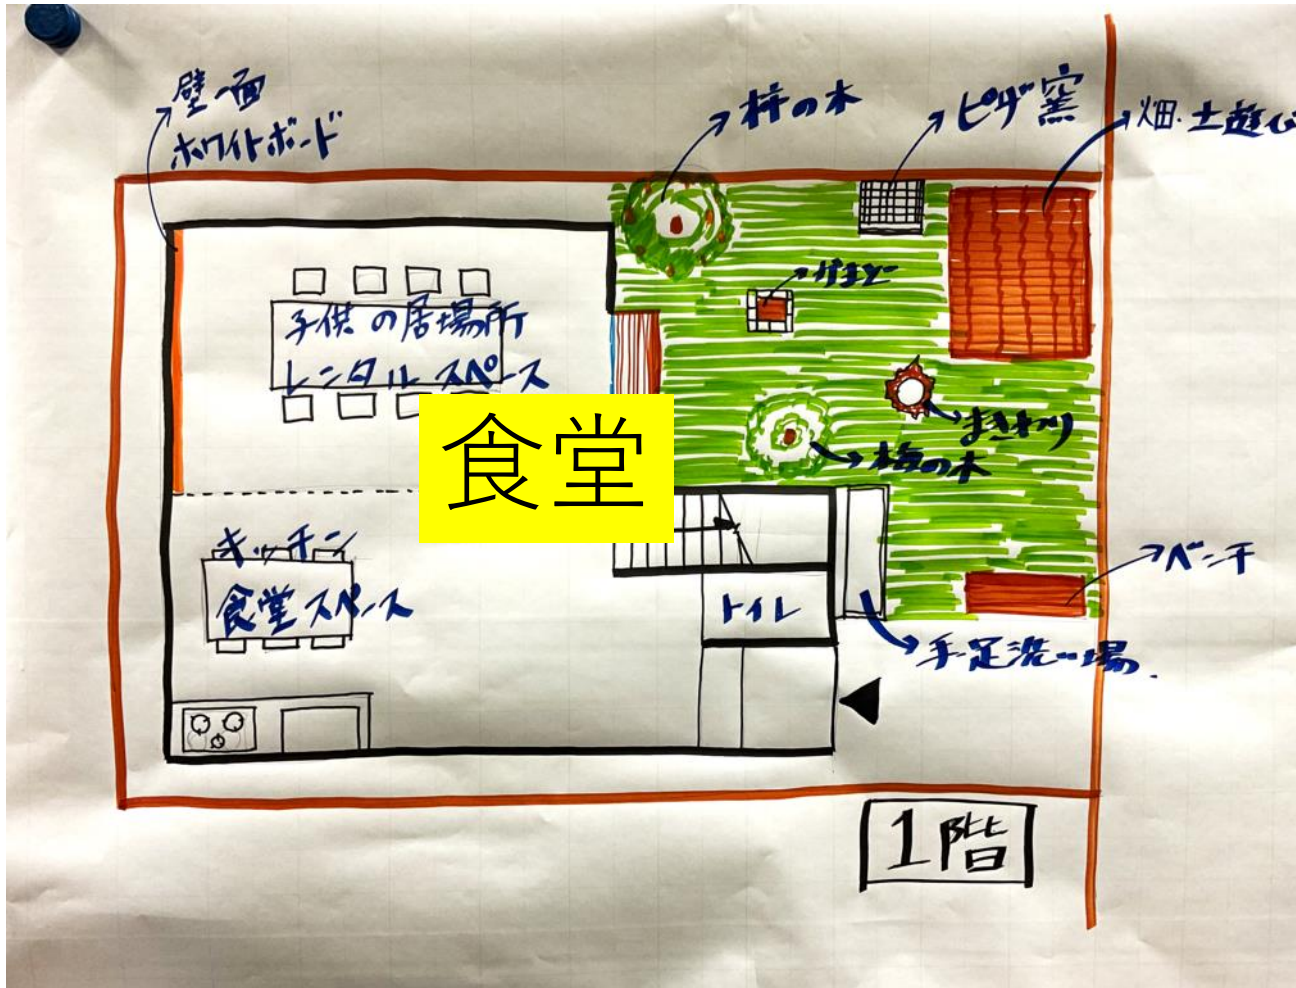 壁一面
ホワイトボード
柿の木
ピザ窯
畑・土遊び
かまど
子供の居場所
レンタルスペース
食堂
まきわり
梅の木
キッチン
食堂スペース
トイレ
ベンチ
手足洗い場
1階